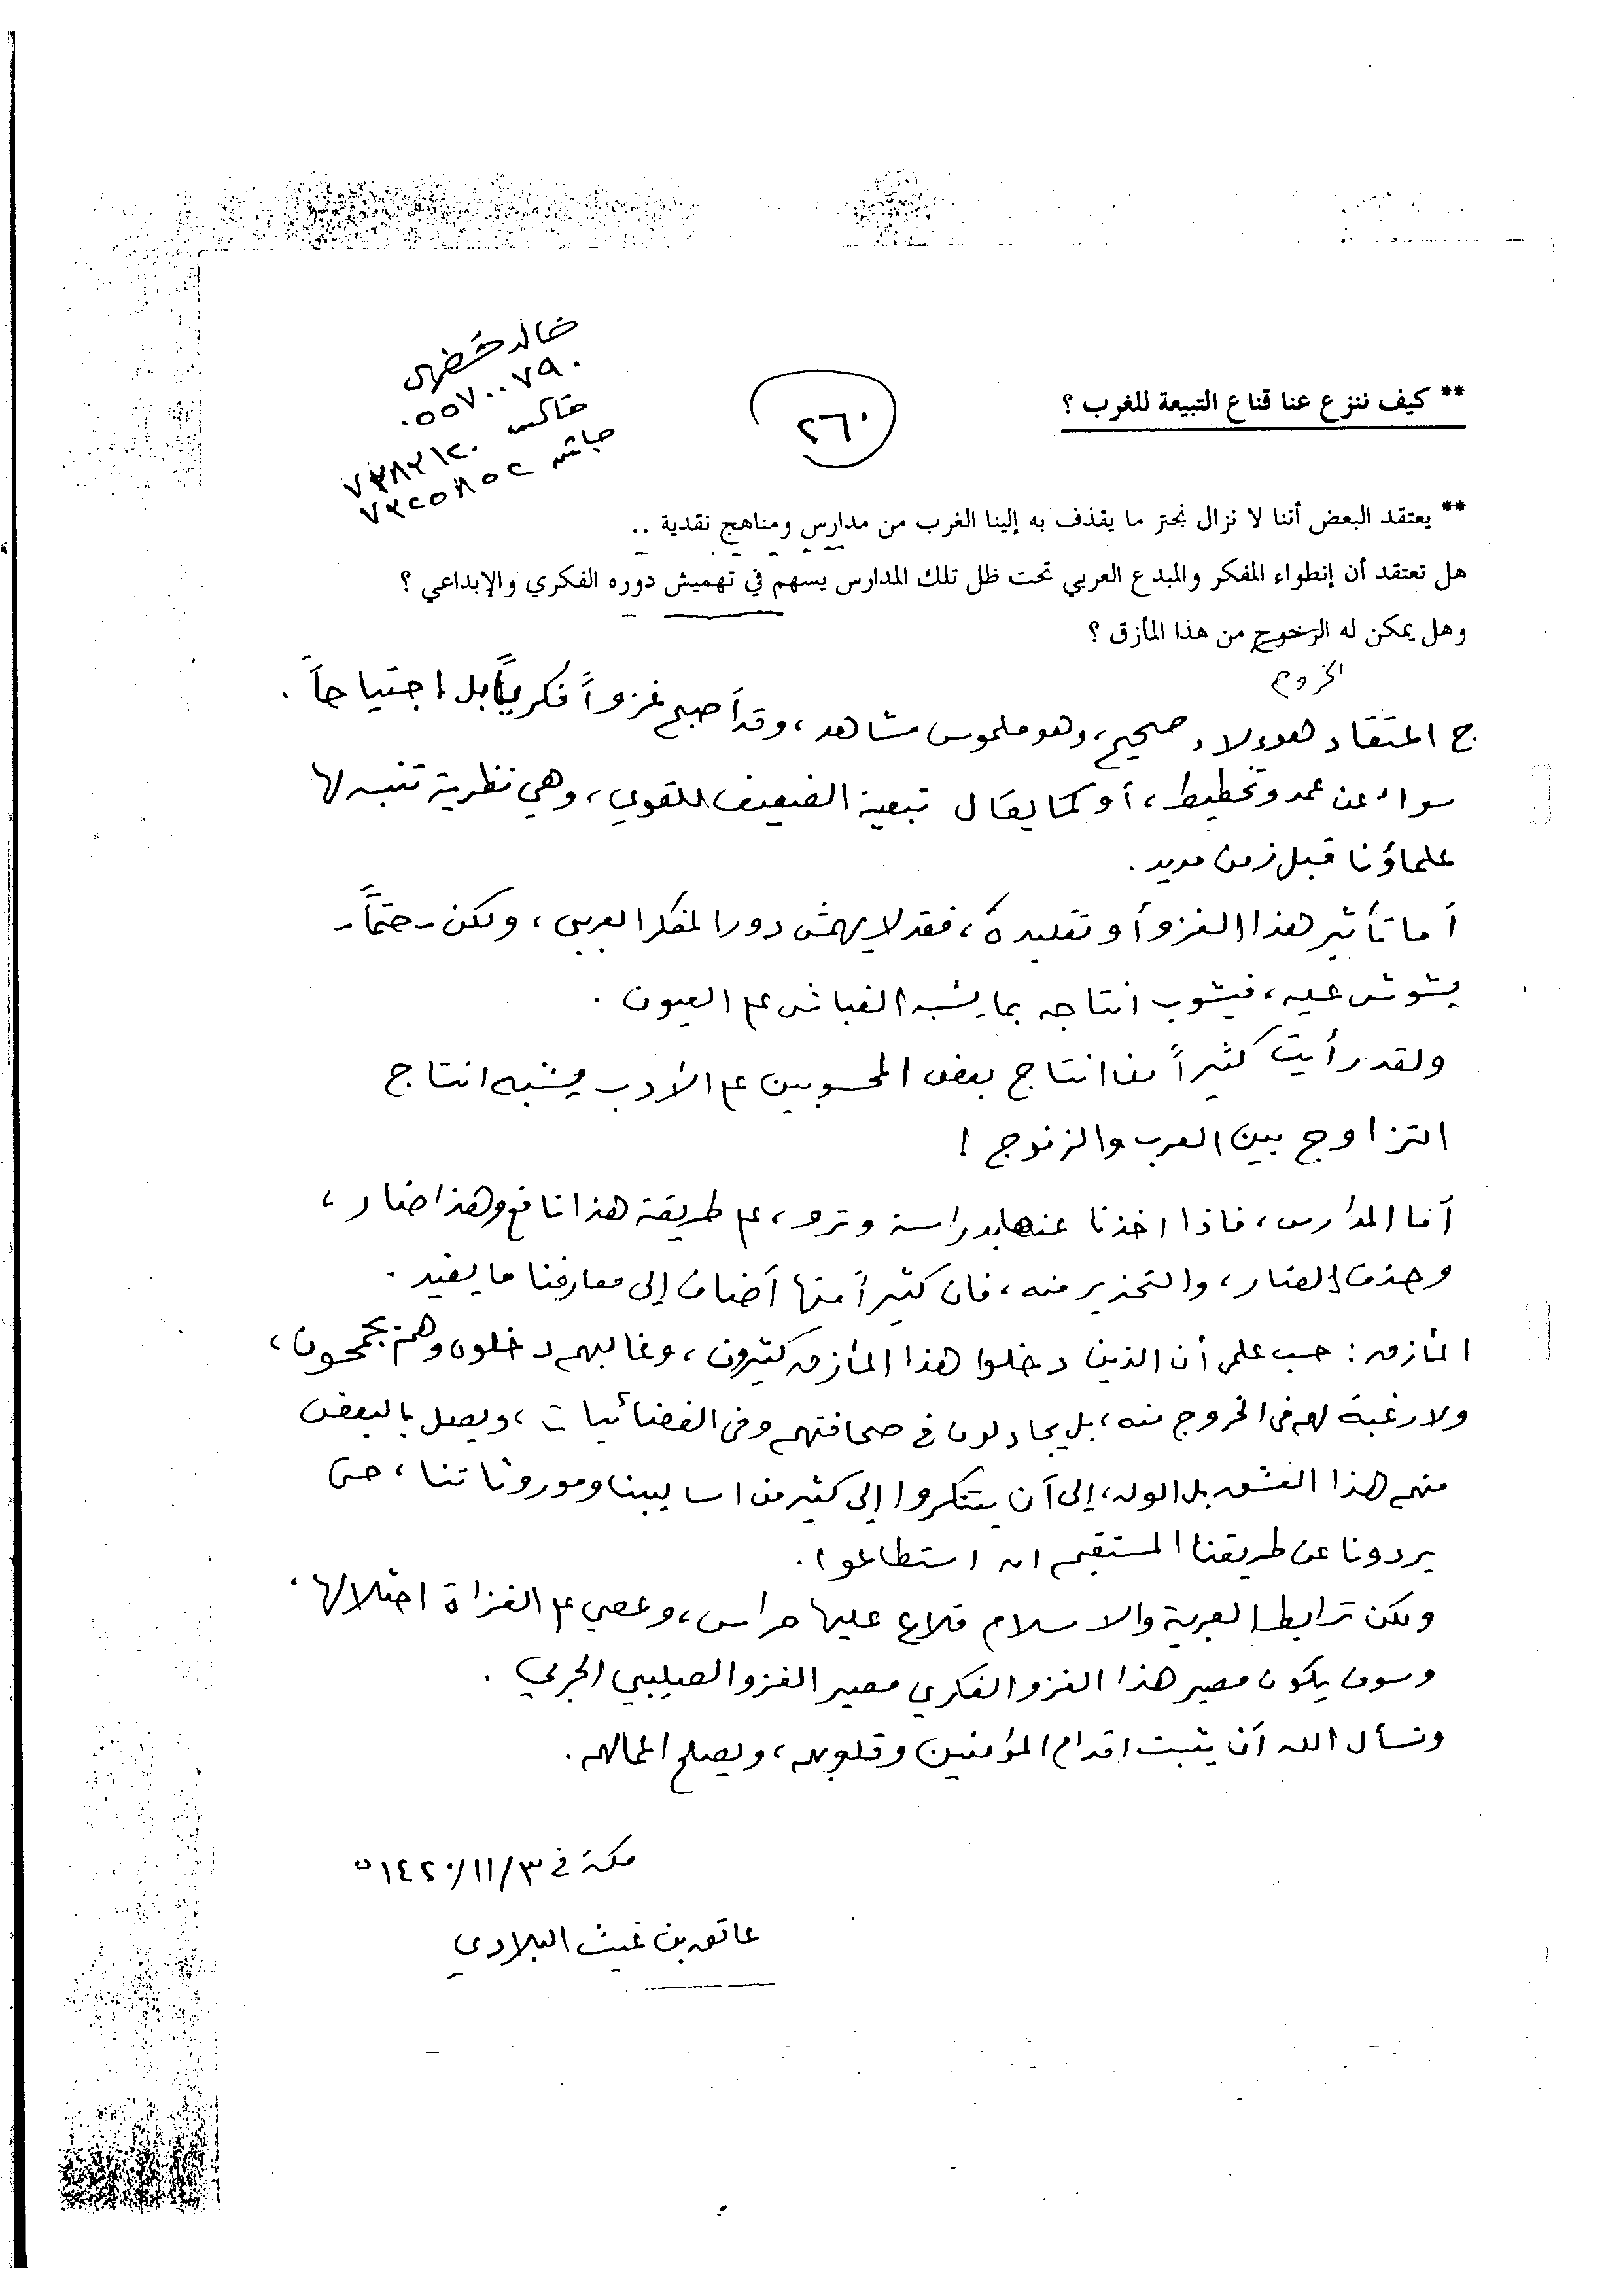 خالد خضري
٠٥٥٧٠٠٧٩٠
فاكس ٧٣٨٣١٢٠
مباشر ٧٣٢٥٨٥٢
٢٦٠
** كيف ننزع عنا قناع التبيعة للغرب ؟
** يعتقد البعض أننا لا نزال نجتر ما يقذف به إلينا الغرب من مدارس ومناهج نقدية ..
هل تعتقد أن إنطواء المفكر والمبدع العربي تحت ظل تلك المدارس يسهم في تهميش دوره الفكري والإبداعي ؟
وهل يمكن له الرخوج من هذا المأزق ؟
الخروج
ج اعتقاد هؤلاء صحيح، وهو ملموس مشاهد، وقد أصبح غزواً فكرياً بل اجتياحاً .
سواء عن عمد وتخطيط، أو كما يقال تبعية الضعيف للقوي، وهي نظرية تنبه لها
علماؤنا قبل زمن مديد .
أما تأثير هذا الغزو أو تقليده، فقد لا يهمش دور المفكر العربي، ولكن - حتماً -
يشوش عليه، فيشوب انتاجه بما يشبه الغباش على العيون .
ولقد رأيت كثيراً من انتاج بعض المحسوبين على الأدب يشبه انتاج
التزاوج بين العرب والزنوج !
أما المدارس، فاذا اخذنا عنها بدراسة وترو، على طريقة هذا نافع وهذا ضار،
وحذف الضار، والتحذير منه، فان كثيراً منها أضاف إلى معارفنا ما يفيد .
المأزق : حسب علمي أن الذين دخلوا هذا المأزق كثيرون، وغالبهم دخلوه وهم يجمحون،
ولا رغبة لهم في الخروج منه، بل يجادلون في صحافتهم وفي الفضائيات، ويصل بالبعض
منهم هذا العشق بل الوله، إلى أن يتنكروا إلى كثير من اساليبنا وموروثاتنا، حتى
يردونا عن طريقنا المستقيم ان استطاعوا .
ولكن ترابط العربية والاسلام قلاع عليها حراس، وعصي على الغزاة احتلالها،
وسوف يكون مصير هذا الغزو الفكري مصير الغزو الصليبي الحربي .
ونسأل الله أن يثبت اقدام المؤمنين وقلوبهم، ويصلح اعمالهم .
مكة في ١٤٢٠/١١/٣ه
عاتق بن غيث البلادي